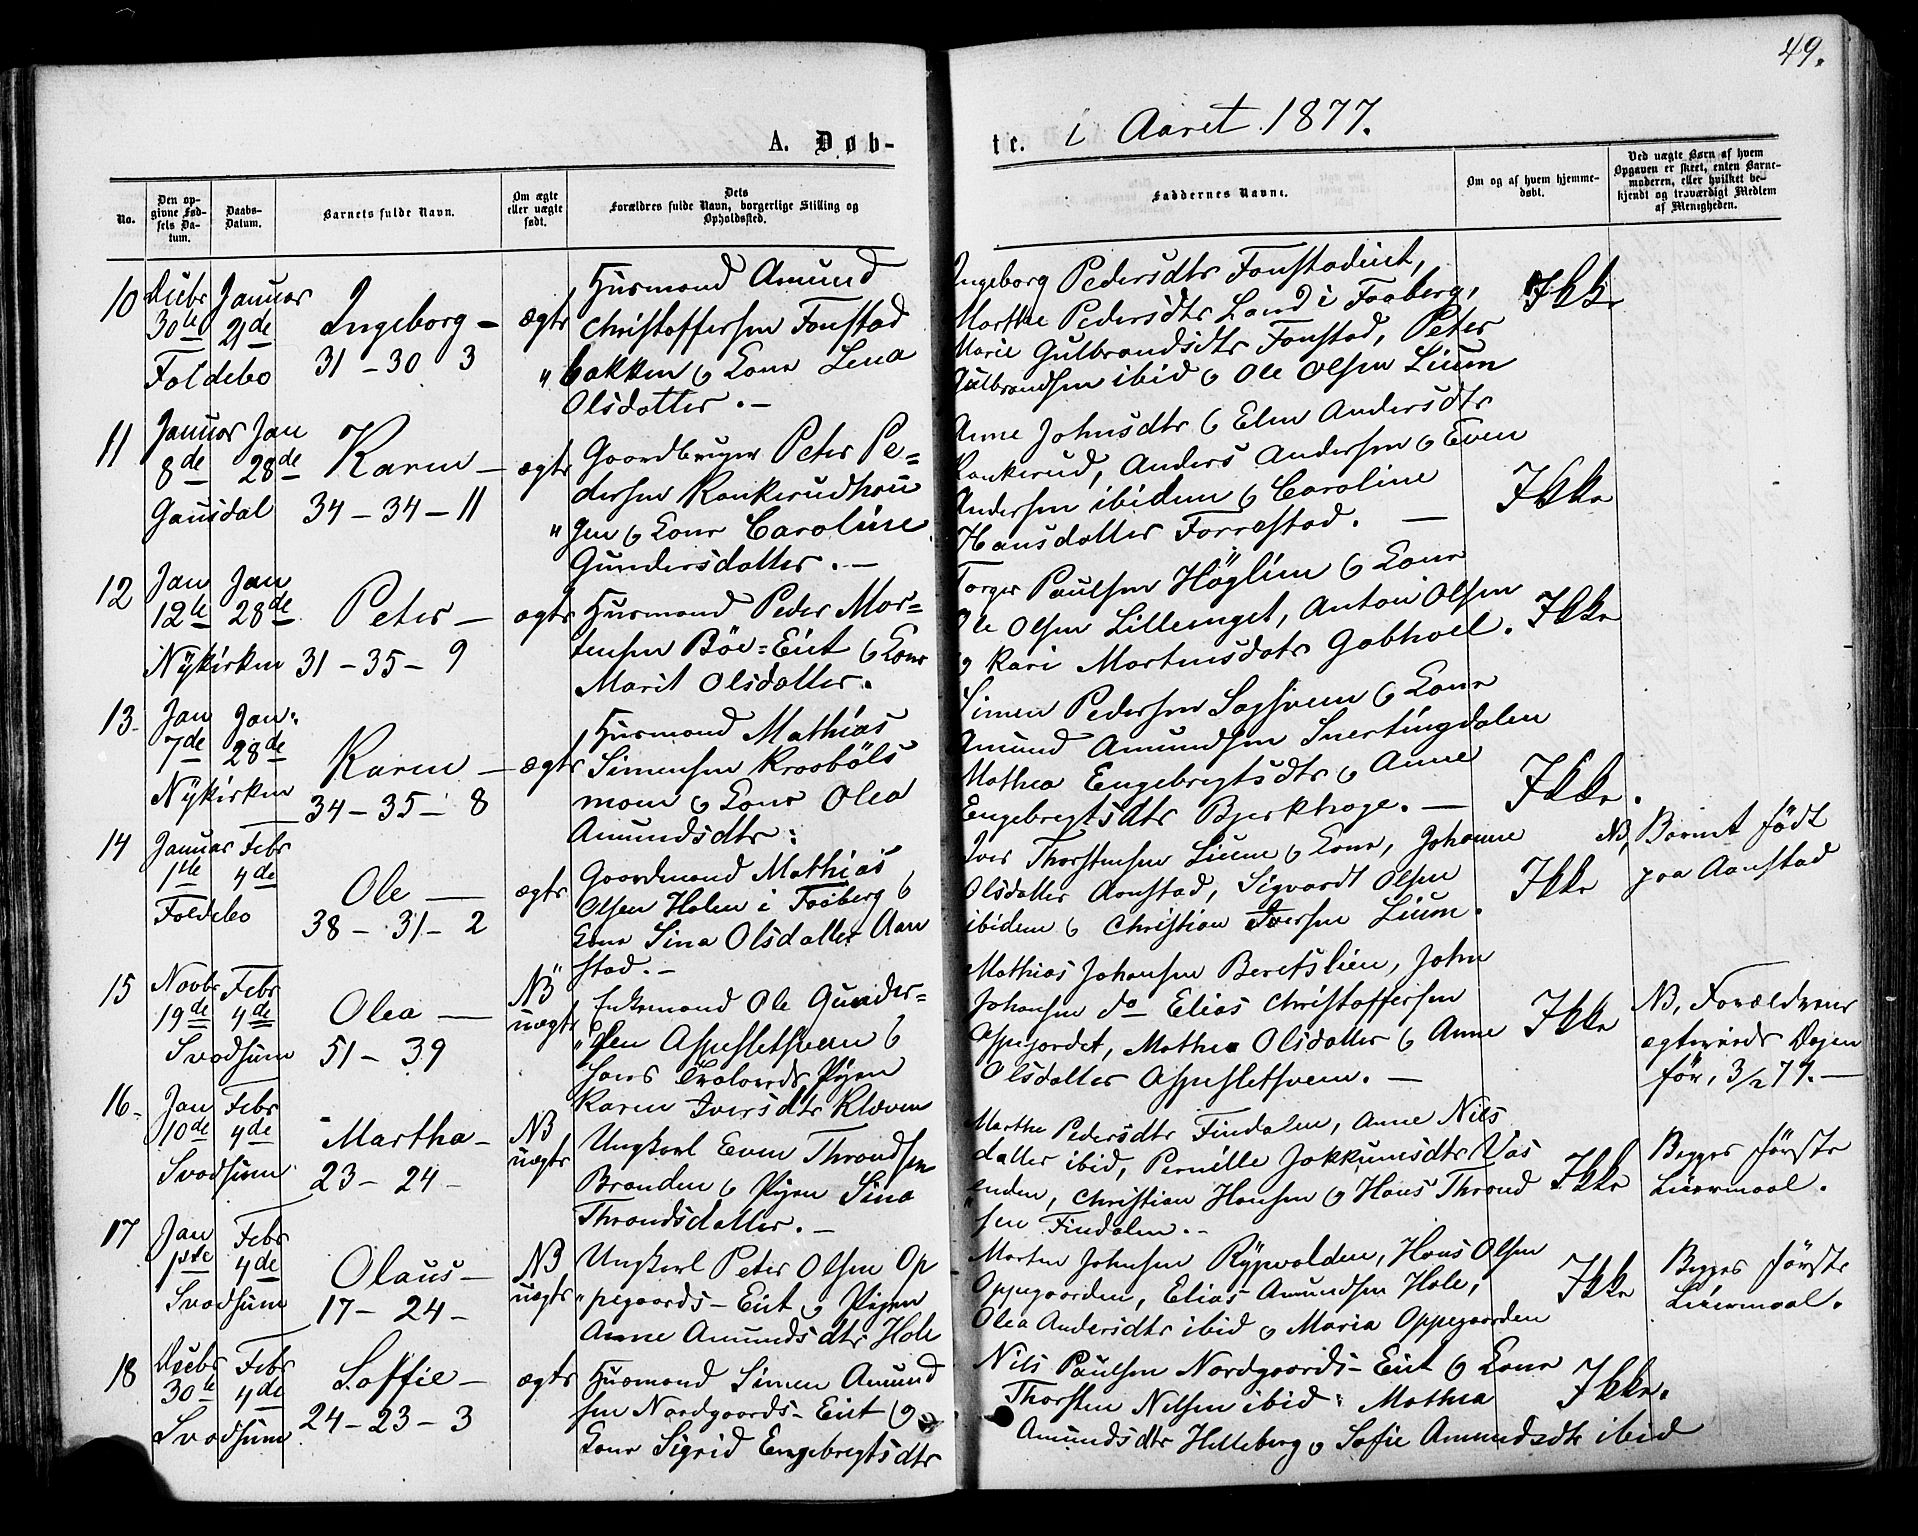 49.
A. Døb-
te. i Aaret 1877.
No.
Den op-
givne Fød-
sels Da-
tum.
Daabs-
Datum.
Barnets fulde Navn.
Om ægte
eller uægte
født.
Dets
Forældres fulde Navn, borgerlige Stilling og
Opholdssted.
Faddernes Navne.
Om og af hvem hjemme-
døbt.
Ved uægte Børn af hvem
Opgaven er skeet, enten Barne-
moderen, eller hvilket be-
kjendt og troværdigt Medlem
af Menigheden.
10 Decbr Januar
30te 21de Ingeborg – ægte
Foldebo 31 – 30 3
Husmand Amund
Christoffersen Fonstad
" bakken & Kone Lena
Olsdatter. –
Ingeborg Pedersdtr Fonstadeiet,
Marthe Pedersdtr Land i Faaberg,
Marie Gulbrandsdtr Fonstad, Peter
Gulbrandsen ibid & Ole Olsen Lium
Ikke
11 Januar Jan
8de 28de Karen – ægte
Gausdal 34 – 34 – 11
Gaardbruger Peter Pe=
dersen Kankerudhau
" gen & Kone Caroline
Gundersdatter. –
Anne Johnsdtr & Elen Andersdtr
Kankerud, Anders Andersen & Even
Andersen ibidem & Caroline
Hansdatter Forrestad. –
Ikke
12 Jan Jan
12te 28de Peter – ægte
Nykirken 31 – 35 – 9
Husmand Peder Mor=
tensen Böe=Eiet & Kone
Marit Olsdatter.
Torger Paulsen Höglien & Kone
Ole Olsen Lilleenget, Anton Olsen
& Kari Mortensdatr Gobhoel.
Ikke
13 Jan Jan.
7de 28de Karen – ægte
Nykirken 34 – 35 – 8
Husmand Mathias
Simensen Kraaböls
moen & Kone Olea
Amundsdtr.
Simen Pedersen Sagsveen & Kone
Amund Amundsen Snertingdalen
Mathea Engebregtsdtr & Anne
Engebregtsdtr Bjerkhage. –
Ikke.
14 Januar Febr
1ste 4de Ole – ægte
Foldebo 38 – 31 – 2
Gaardmand Mathias
Olsen Holen i Faaberg &
Kone Sina Olsdatter Aan
stad. –
Iver Thorstensen Lium & Kone, Johanne
Olsdatter Aanstad, Sigvardt Olsen
ibidem & Christian Iversen Lium.
Ikke
NB, Barnet født
paa Aanstad
15 Novbr Febr
19de 4de Olea – NB uægte
Svadsum 51 – 39
Enkemand Ole Gunder=
" sen Aspesletsveen &
Pigen
Karen Iversdtr Kleven
Mathias Johansen Beretslien, John
Johansen do Elias Christoffersen
Aspejordet, Mathea Olsdatter & Anne
Olsdatter Aspesletsveen. –
Ikke
NB, Forældrene
ægteviede Dagen
för, 3/2 77. –
16 Jan Febr
10de 4de Martha – NB uægte
Svadsum 23 – 24 –
Ungkarl Even Throndsen
Branden & Pigen Sina
Throndsdatter. –
Marthe Pedersdtr Findalen, Anne Nils
datter ibid, Pernille Jokkumsdtr Vas
enden, Christian Hansen & Hans Thrond
sen Findalen. –
Ikke
Begges förste
Leiermaal.
17 Jan Febr
1ste 4de Olaus – NB uægte
Svadsum 17 – 24 –
Ungkarl Peter Olsen Op
" pegaards – Eiet & Pigen
Anne Amundsdtr Hole
Morten Johnsen Rypvolden, Hans Olsen
Oppegaarden, Elias Amundsen Hole,
Olea Andersdtr ibid & Maria Oppegaarden
Ikke
Begges förste
Leiermaal.
18 Decbr Febr
30te 4de Soffie – ægte
Svadsum 24 – 23 – 3
Husmand Simen Amund
sen Nordgaards – Eiet &
Kone Sigrid Engebregtsdtr
Nils Paulsen Nordgaards – Eiet & Kone
Thorsten Nilsen ibid: Mathea
Amundsdtr Helleberg & Sofie Amundsdtr ibid
Ikke.